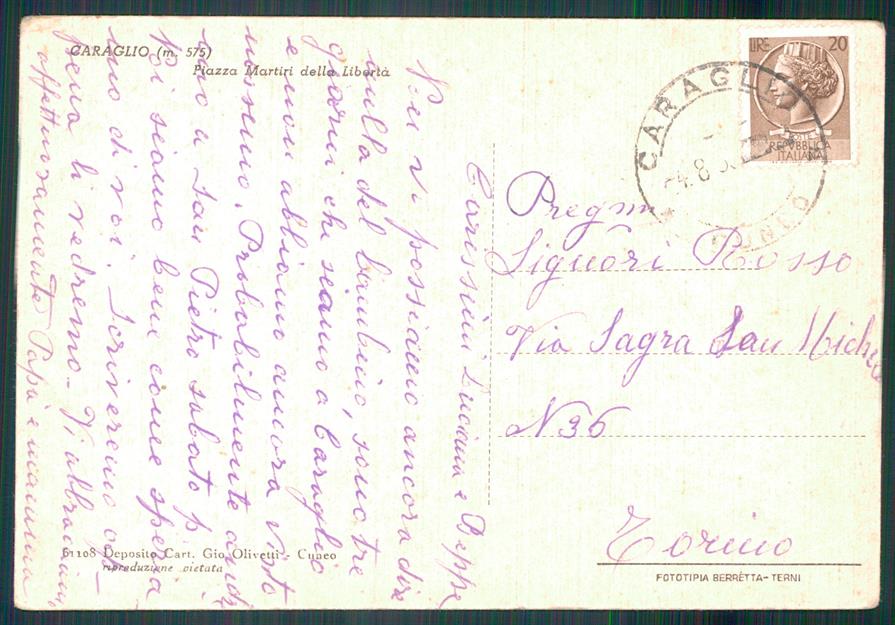 CARAGLIO (m. 575)
Piazza Martiri della Libertà
Carissimi Luciana e Beppe
Non vi possiamo ancora dire
nulla del bambino, sono tre
giorni che siamo a Caraglio
e non abbiamo ancora visto
nessuno. Probabilmente andr
a San Pietro sabato p.
Noi siamo bene come spera
mo di voi. Scriveremo ap-
pena li vedremo - Vi abbracciamo
affettuosamente Papà e mamma
61108 Deposito Cart. Gio Olivetti - Cuneo
riproduzione vietata
LIRE 20
POSTE
REPVBBLICA
ITALIANA
CARAGLIO
4.8
CUNEO
Pregmi
Signori Rosso
Via Sagra San Michele
N 36
Torino
FOTOTIPIA BERRETTA - TERNI